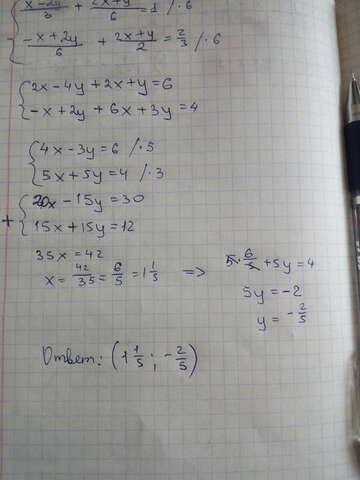 { (x-2y)/3 + (2x+y)/6 = 1 /·6
(-x+2y)/6 + (2x+y)/2 = 2/3 /·6
{ 2x-4y+2x+y=6
-x+2y+6x+3y=4
{ 4x-3y=6 /·5
5x+5y=4 /·3
+ { 20x-15y=30
15x+15y=12
35x=42
x= 42/35 = 6/5 = 1 1/5 => 5· 6/5 +5y=4
5y=-2
y= -2/5
Ответ: (1 1/5 ; -2/5)